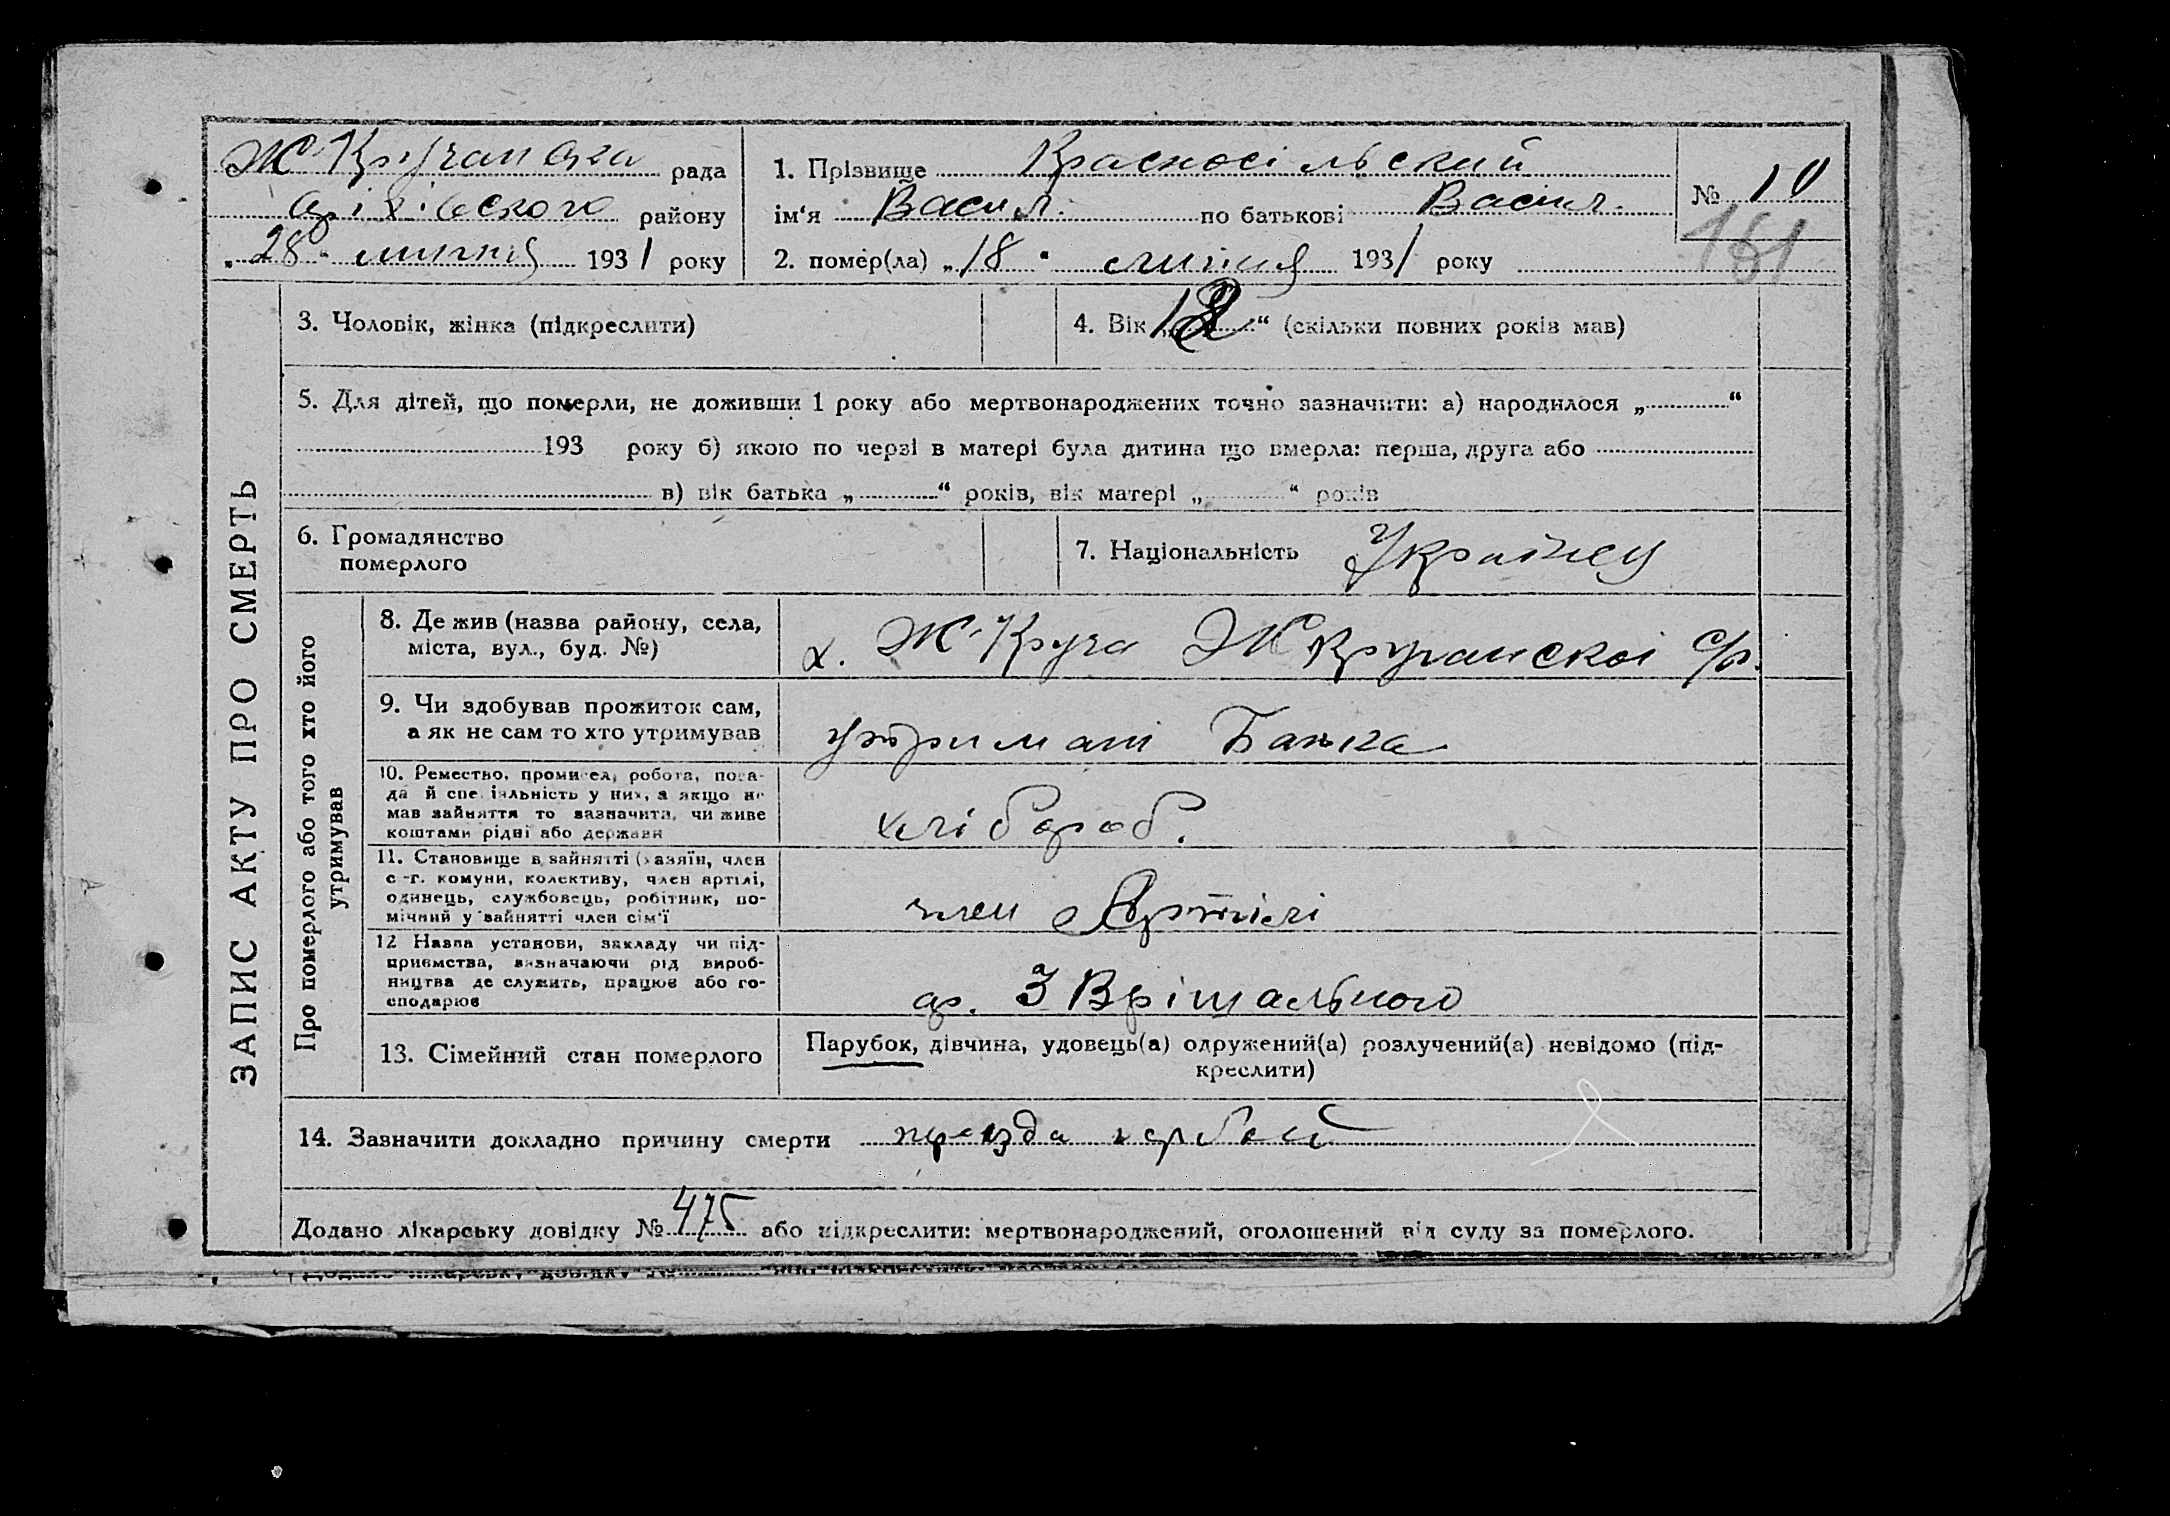 Ж-Кручанська рада
Оріхівського району
„28“ липня 1931 року
1. Прізвище Красносільский
ім‘я Васил. по батькові Васил.
2. помер(ла) „18“ липня 1931 року
№ 10
161
3. Чоловік, жінка (підкреслити)
4. Вік „12“ (скільки повних років мав)
5. Для дітей, що померли, не доживши 1 року або мертвонароджених точно зазначити: а) народилося „ “
193 року б) якою по черзі в матері була дитина що вмерла: перша, друга або
в) вік батька „ “ років, вік матері „ “ років
6. Громадянство
померлого
7. Національність Українец
ЗАПИС АКТУ ПРО СМЕРТЬ
Про померлого або того хто його
утримував
8. Де жив (назва району, села,
міста, вул., буд. №)
х. Ж-Круча Ж Кручанскоі С/р.
9. Чи здобував прожиток сам,
а як не сам то хто утримував
утримані Батька
10. Ремество, промисел, робота, поса-
да й спеціяльність у них, а якщо не
мав зайняття то зазначити, чи живе
коштами рідні або держави
хлібороб.
11. Становище в зайнятті (хазяїн, член
с-г. комуни, колективу, член артілі,
одинець, службовець, робітник, по-
мічний у зайнятті член сім‘ї
член Артілі
12 Назва установи, закладу чи під-
приємства, зазначаючи рід вироб-
ництва де служить, працює або го-
сподарює
ар. 3 Врішального
13. Сімейний стан померлого
Парубок, дівчина, удовець(а) одружений(а) розлучений(а) невідомо (під-
креслити)
14. Зазначити докладно причину смерти
Додано лікарську довідку № 475 або підкреслити: мертвонароджений, оголошений від суду за померлого.